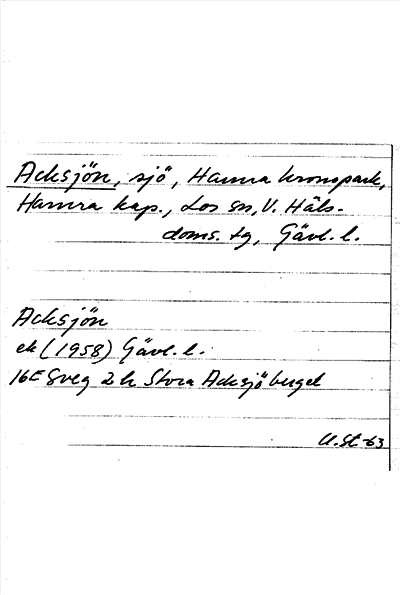 Acksjön, sjö, Hamra kronopark,
Hamra kap., Los sn, V. Häls.
doms. tg, Gävl. l.
Acksjön
ek (1958) Gävl. l.
16E Sveg 2h Stora Acksjöberget
U.St-63